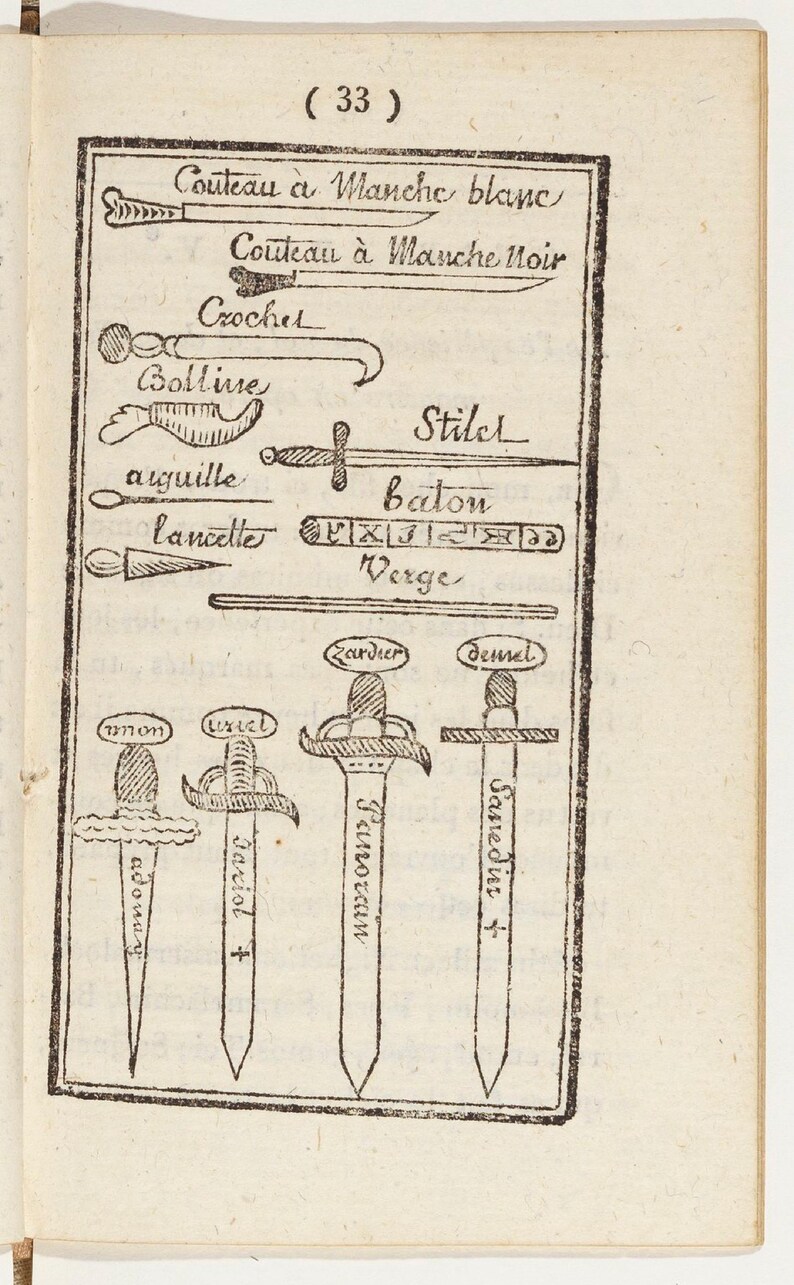 ( 33 )
Couteau à Manche blanc
Couteau à Manche Noir
Crochet
Bolline
Stilet
aiguille
baton
lancette
Verge
zardier
demel
imon
uriel
adonay
dariol +
Panoraim
Sanediur +